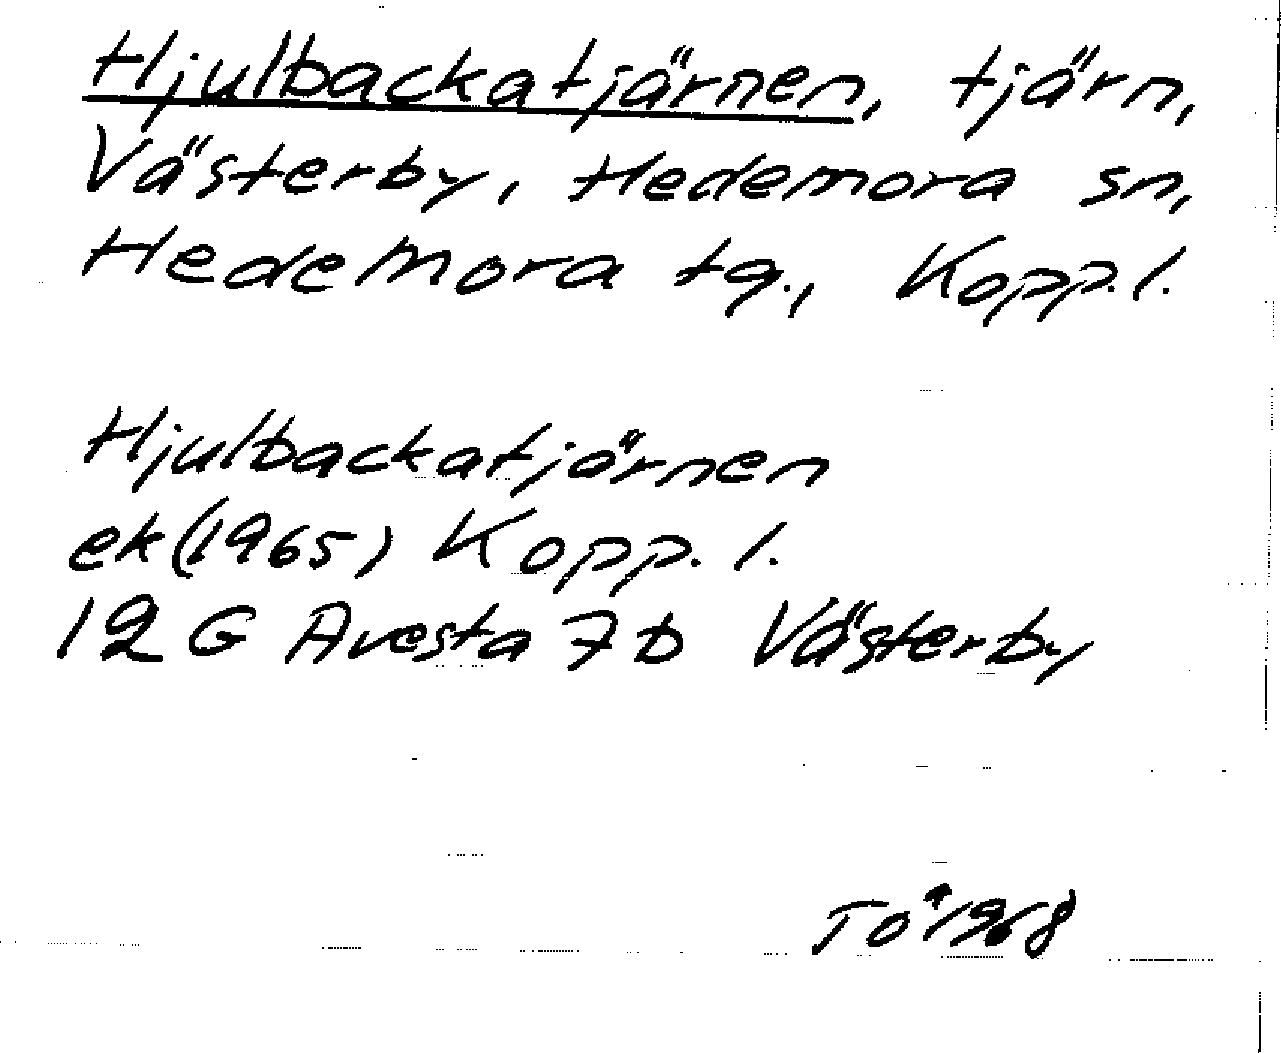 Hjulbackatjärnen, tjärn,
Västerby, Hedemora sn,
Hedemora tg., Kopp.l.
Hjulbackatjärnen
ek (1965) Kopp. l.
12 G Avesta 7b Västerby
TÖ 1968